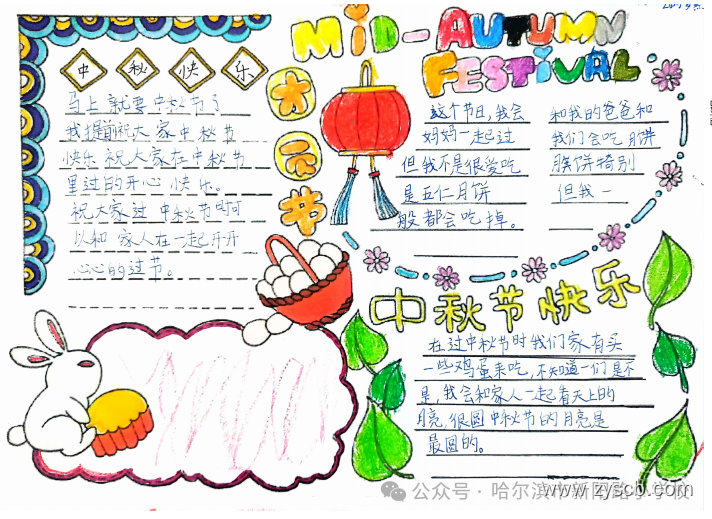 MiD-AUTUMN
FESTiVAL
中秋快乐
马上就要中秋节了
我提前祝大家中秋节
快乐 祝大家在中秋节
里过的开心快乐。
祝大家过中秋节时可
以和家人在一起开开
心心的过节。
这个节日,我会 和我的爸爸和
妈妈一起过 我们会吃月饼
但我不是很爱吃 月饼特别
是五仁月饼 但我一
般都会吃掉。
中秋节快乐
在过中秋节时我们家有买
一些鸡蛋来吃,不知道一们是不
是,我会和家人一起看天上的
月亮,很圆中秋节的月亮是
最圆的。
公众号·哈尔滨市新
www.zyscb.com